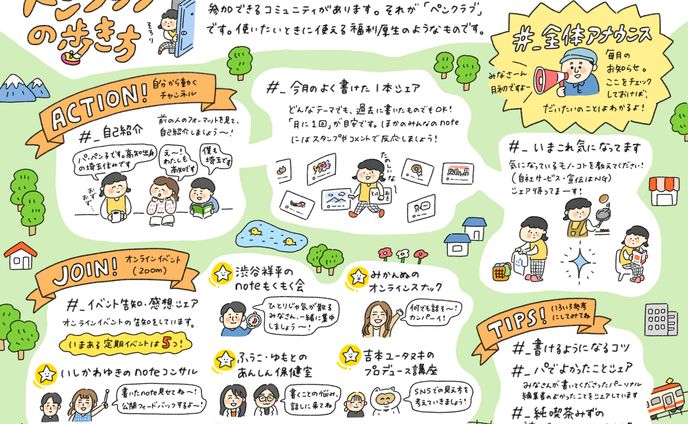 の歩き方
そろり
参加できるコミュニティがあります。それが「ペンクラブ」
です。使いたいときに使える福利厚生のようなものです。
#_全体アナウンス
みなさーん
月初ですよー
毎月の
お知らせ。
ここをチェック
しておけば、
だいたいのことはわかるよ!
ACTION!
自分から動く
チャンネル
#_自己紹介
前の人のフォーマットを見て、
自己紹介しましょう〜!
え〜!
わたしも
高知です
僕も
埼玉です
おずおず
#_今月のよく書けた1本シェア
どんなテーマでも、過去に書いたものでもOK!
「月に1回」が目安です。ほかのみんなのnote
にはスタンプやコメントで反応しましょう!
#_いまこれ気になってます
気になっているモノ・コトを教えてください!
(自社サービス・宣伝はNG)
シェア待ってまーす!
JOIN!
オンラインイベント
(zoom)
#_イベント告知・感想シェア
オンラインイベントの告知をしています。
いまある定期イベントは5つ!
いしかわゆきのnoteコンサル
書いたnote見せてね〜!
公開フィードバックするよ〜!
渋谷祥平の
noteもくもく会
ひとりじゃ気が散る
みなさん、一緒に集中
しましょう〜!
みかんぬの
オンラインスナック
何でも話そ〜!
カンパーイ!
ふうこ・ゆもとの
あんしん保健室
書くことの悩み、
話しに来てね
吉本ユータヌキの
プロデュース講座
SNSでの見え方を
考えていきましょう!
TIPS!
いろいろ参考
にしてみてね
#_書けるようになるコツ
#_パでよかったことシェア
みなさんが書いてくださったパーソナル
編集者のよかったことをシェアしています
#_純喫茶みずの